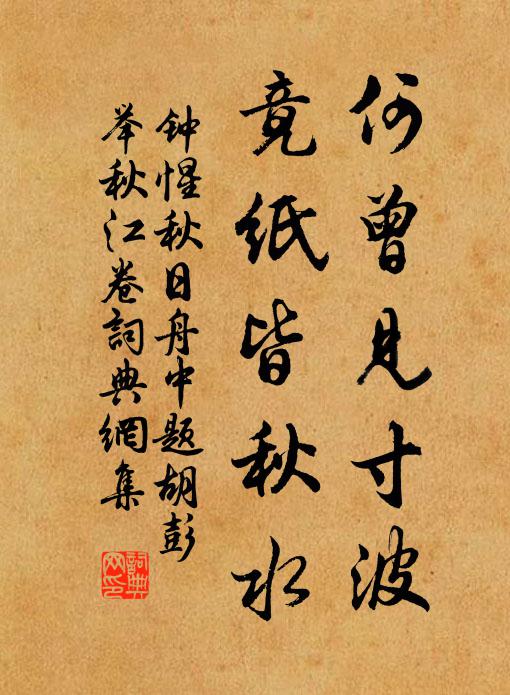 何曾見寸波
竟紙皆秋水
钟惺秋日舟中题胡彭
举秋江卷詞典網集
詞典网印